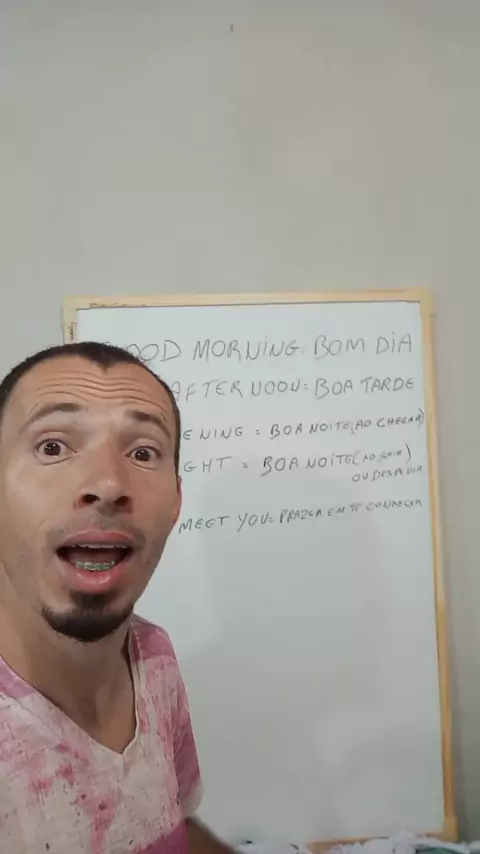 OOD MORNING = BOM DIA
AFTERNOON = BOA TARDE
ENING = BOA NOITE (AO CHEGAR)
GHT = BOA NOITE (AO SAIR)
OU DESPEDIR
MEET YOU = PRAZER EM TE CONHECER